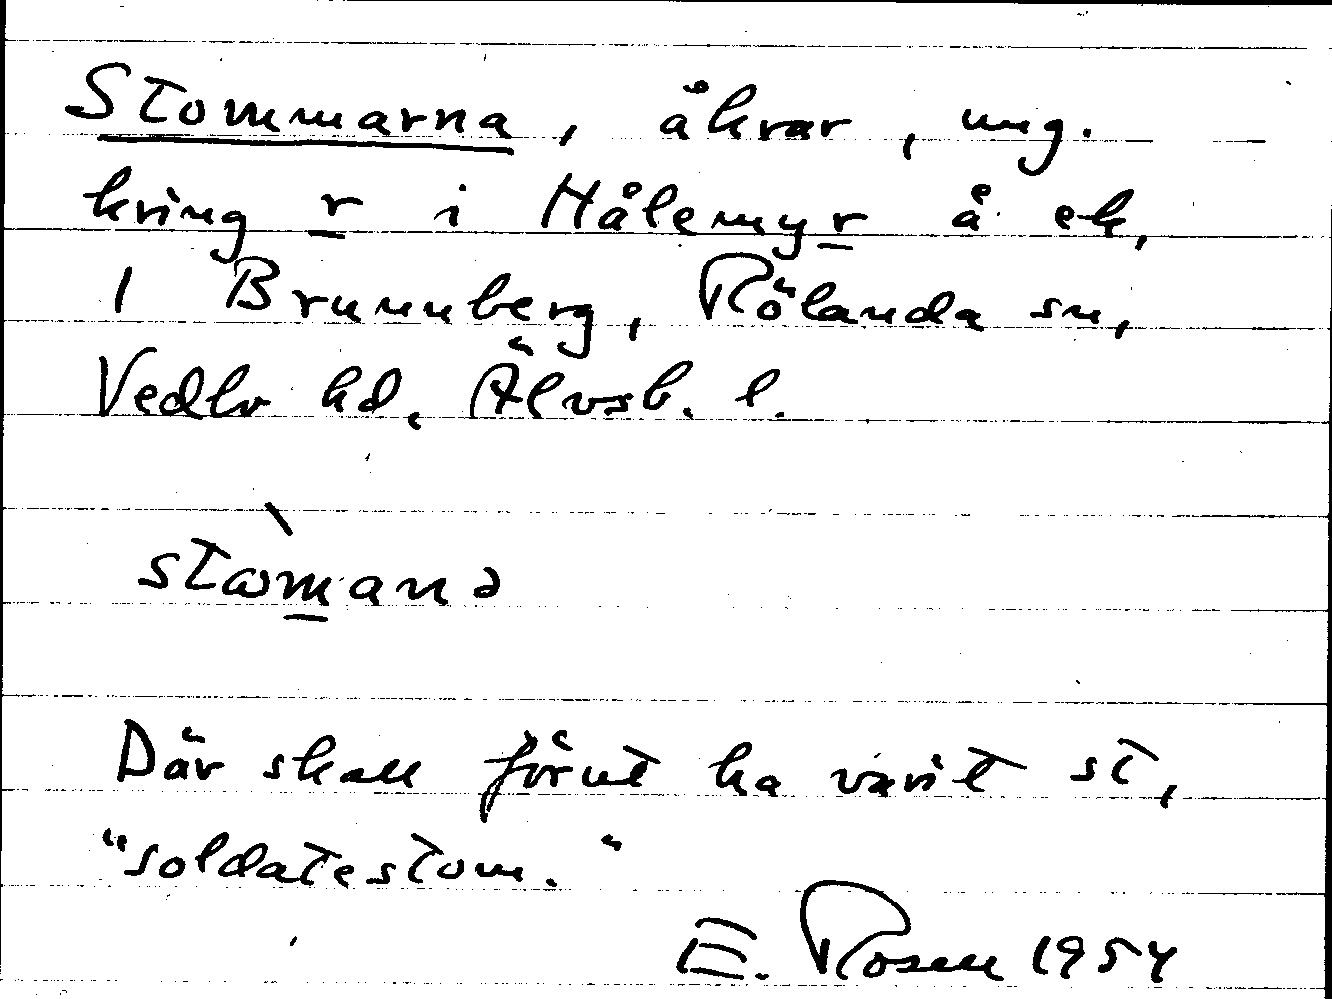 Stommarna, åkrar, ung.
kring r i Hålemyr å ek,
1 Brunnberg, Rölanda sn,
Vedbo hd, Älvsb. l.
stòmanə
Där skall förut ha varit st,
"soldatestom."
E. Rosell 1954